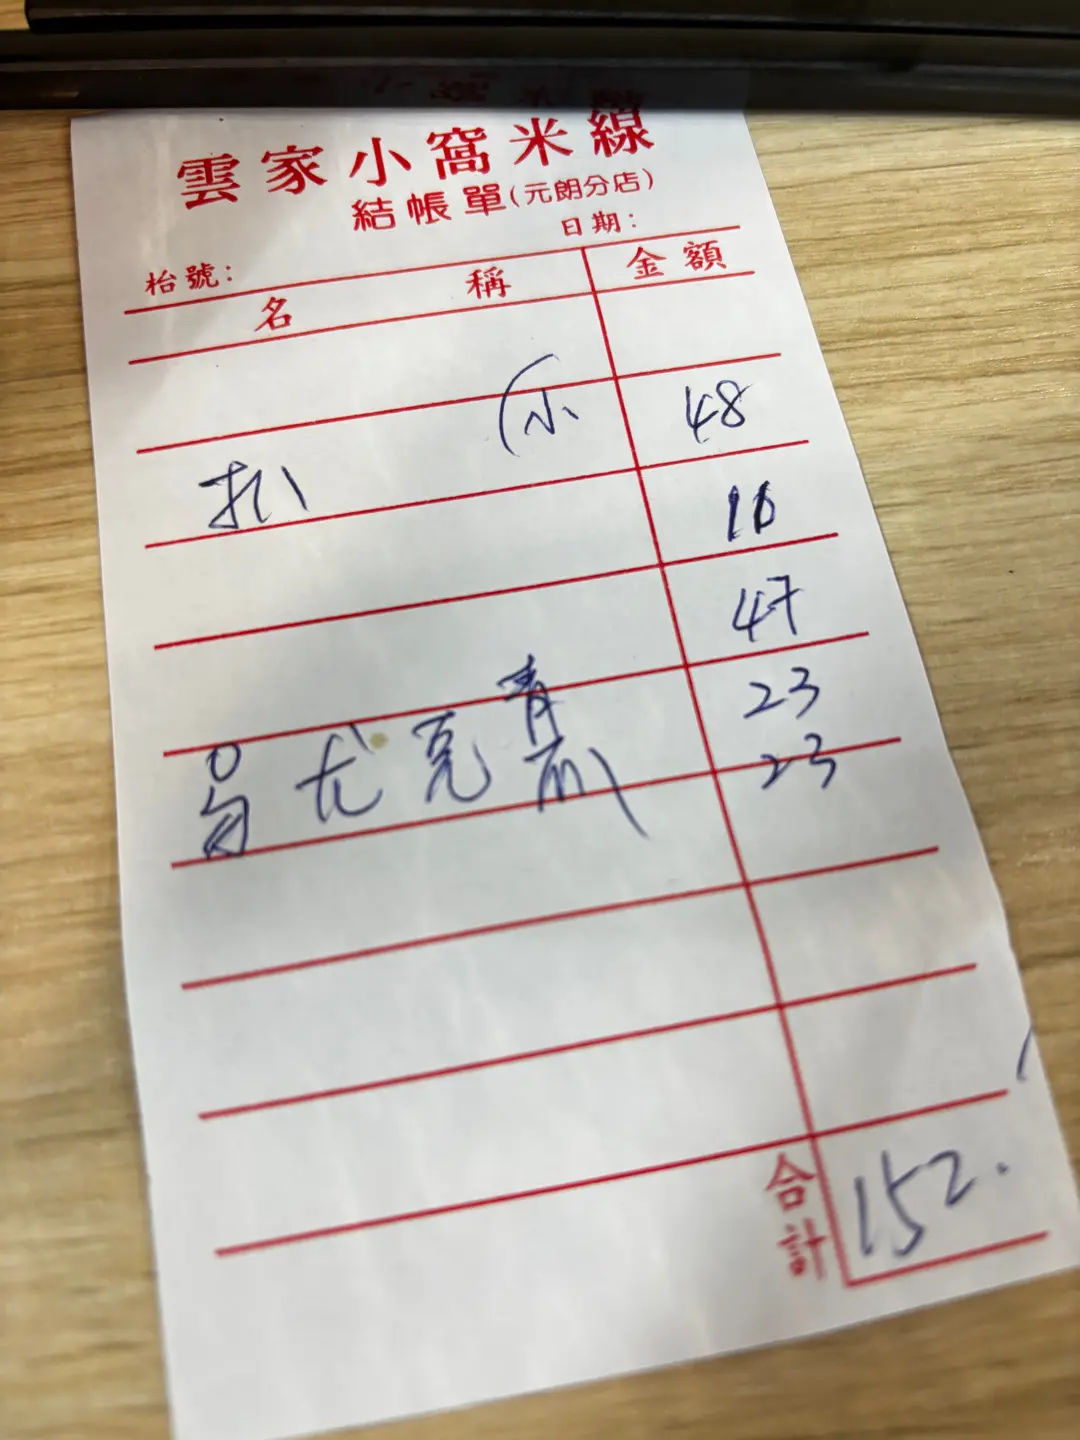 雲家小窩米線
結帳單(元朗分店)
日期:
枱號:
名稱 金額
(小 48
扒 11
47
尤克青 23
23
合計 152.